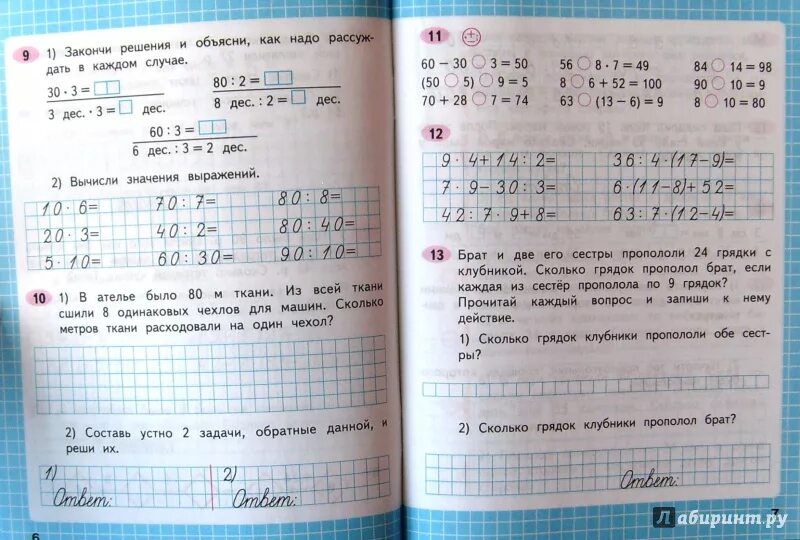 9 1) Закончи решения и объясни, как надо рассуж-
дать в каждом случае.
30 · 3 =
80 : 2 =
3 дес. · 3 = дес.
8 дес. : 2 = дес.
60 : 3 =
6 дес. : 3 = 2 дес.
2) Вычисли значения выражений.
10 · 6= 70 : 7= 80 : 8=
20 · 3= 40 : 2= 80 : 40=
5 · 10= 60 : 30= 90 : 10=
10 1) В ателье было 80 м ткани. Из всей ткани
сшили 8 одинаковых чехлов для машин. Сколько
метров ткани расходовали на один чехол?
2) Составь устно 2 задачи, обратные данной, и
реши их.
1) 2)
Ответ: Ответ:
6
11
60 − 30 3 = 50 56 8 · 7 = 49 84 14 = 98
(50 5) 9 = 5 8 6 + 52 = 100 90 10 = 9
70 + 28 7 = 74 63 (13 − 6) = 9 8 10 = 80
12
9 · 4+14 : 2= 36 : 4·(17−9)=
7 · 9−30 : 3= 6·(11−8)+52=
42 : 7 · 9+8= 63 : 7·(12−4)=
13 Брат и две его сестры пропололи 24 грядки с
клубникой. Сколько грядок прополол брат, если
каждая из сестёр прополола по 9 грядок?
Прочитай каждый вопрос и запиши к нему
действие.
1) Сколько грядок клубники пропололи обе сест-
ры?
2) Сколько грядок клубники прополол брат?
Ответ:
7
Лабиринт.ру